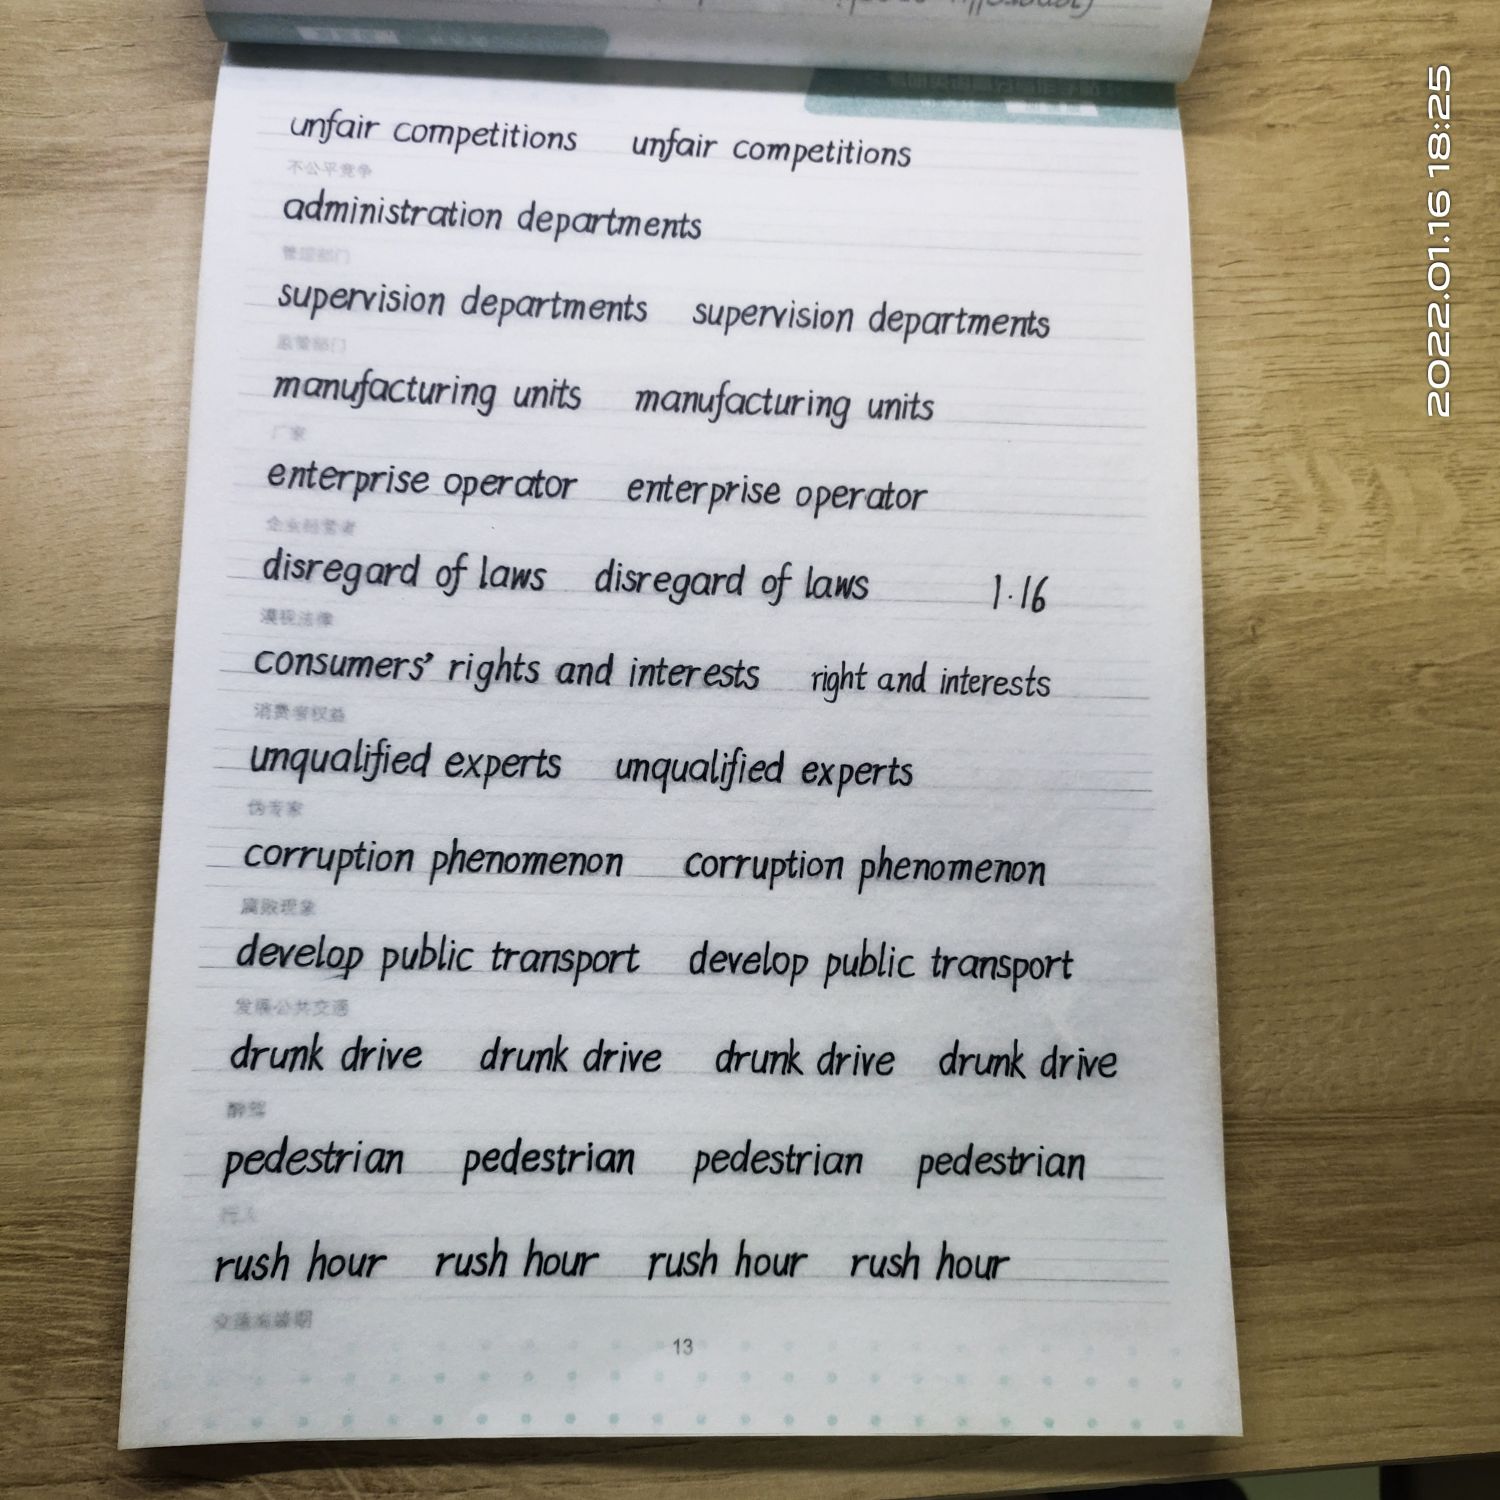 unfair competitions unfair competitions
不公平竞争
administration departments
管理部门
supervision departments supervision departments
监管部门
manufacturing units manufacturing units
厂家
enterprise operator enterprise operator
企业经营者
disregard of laws disregard of laws 1.16
漠视法律
consumers' rights and interests right and interests
消费者权益
unqualified experts unqualified experts
伪专家
corruption phenomenon corruption phenomenon
腐败现象
develop public transport develop public transport
发展公共交通
drunk drive drunk drive drunk drive drunk drive
醉驾
pedestrian pedestrian pedestrian pedestrian
行人
rush hour rush hour rush hour rush hour
交通高峰期
13
2022.01.16 18:25